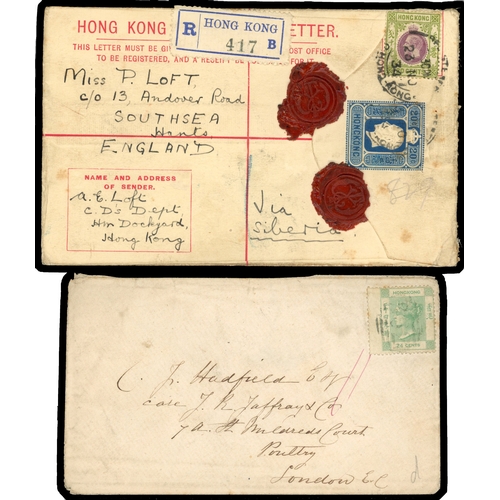 HONG KONG LETTER.
THIS LETTER MUST BE GIV POST OFFICE
TO BE REGISTERED, AND A RECEIPT FOR IT.
R HONG KONG
417 B
HONG KONG
HONGKONG
20 20
Miss P. LOFT,
c/o 13, Andover Road
SOUTHSEA
Hants
ENGLAND
NAME AND ADDRESS
OF SENDER.
A. E. Loft.
C. D's Dept
Hm Dockyard,
Hong Kong
Via
Siberia
829
HONGKONG
24 CENTS
C. J. Hadfield Esq
care J. R. Jaffray & Co
7a St Mildreds Court
Poultry
London E.C
d